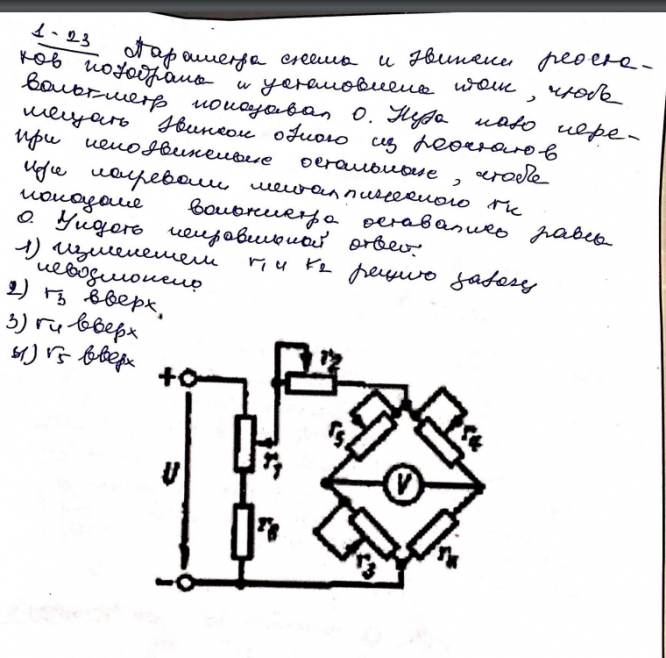 1-23 Параметра схема и движки реоста-
ков подобрана и установлена так, чтобы
вольтметр показывал 0. Куда надо пере-
мещать движок одного из реостатов
при неподвижных остальных, чтобы
при нагревании металлического rк
показание вольтметра оставались равны
0. Указать неправильной ответ.
1) изменением r1 и r2 решить задачу
невозможно
2) r3 вверх.
3) r4 вверх
4) r5 вверх
+ r2
r5 r4
U r1 V
r6
r3 rк
-